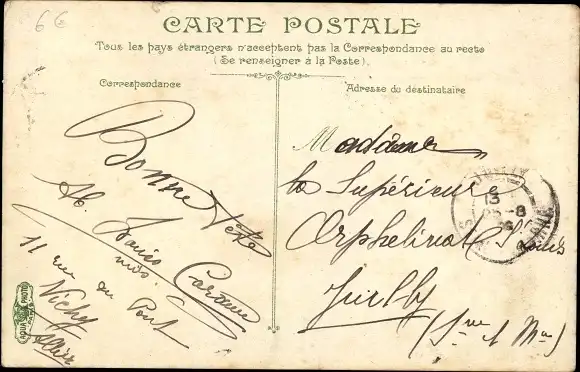 6€
CARTE POSTALE
Tous les pays étrangers n'acceptent pas la Correspondance au recto
(Se renseigner à la Poste).
Correspondance
Adresse du destinataire
Bonne fête
11 rue du Pont
Vichy
Allier
Madame
la Supérieure
Orphelinat St Louis
Juilly
(Sne & Mne)
13
AQUA PHOTO